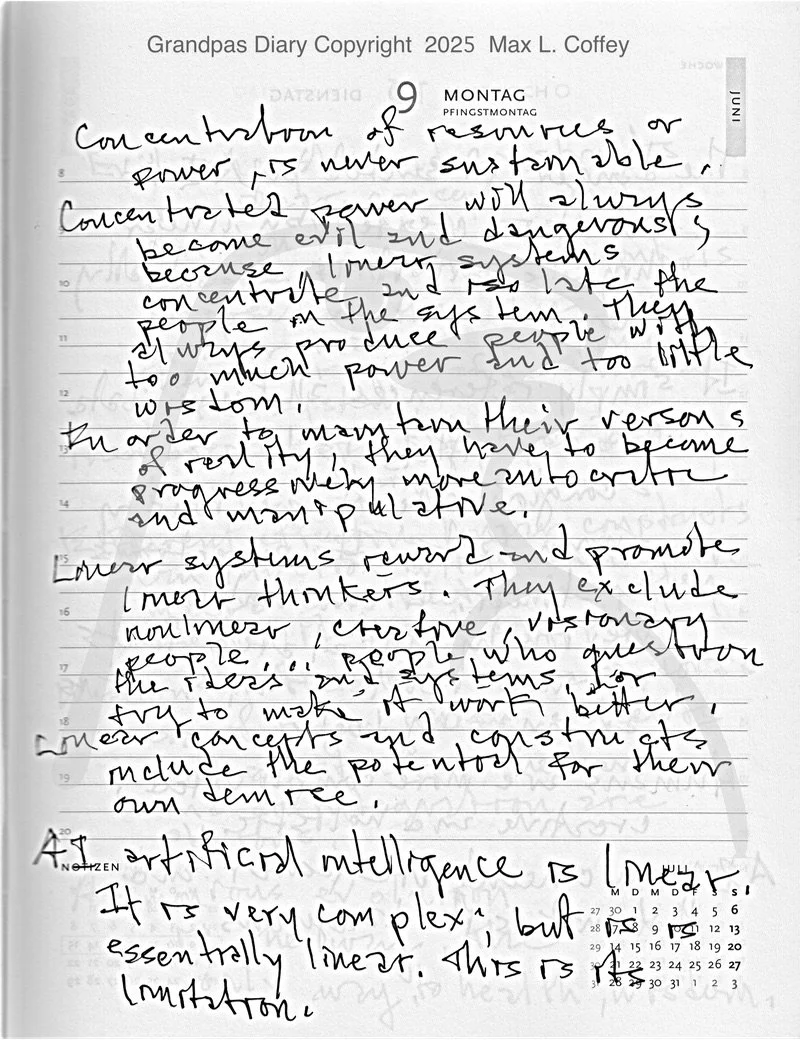 Grandpas Diary Copyright 2025 Max L. Coffey
9 MONTAG
PFINGSTMONTAG
JUNI
Concentration of resources or
power, is never sustainable.
Concentrated power will always
become evil and dangerous;
because, linear systems
concentrate and isolate the
people in the system. They
always produce people with
too much power and too little
wisdom.
In order to maintain their versons
of reality, they have to become
progressively more autocratic
and manipulative.
Linear systems reward and promote
linear thinkers. They exclude
nonlinear, creative, visionary
people... people who question
the ideas and systems, or
try to make it work better.
Linear concepts and constructs
include the potential for their
own demise.
AI artificial intelligence is linear.
It is very complex; but is is
essentially linear. This is its
limitation.
8
9
10
11
12
13
14
15
16
17
18
19
20
NOTIZEN
JULI
M D M D F S S
27 30 1 2 3 4 5 6
28 7 8 9 10 11 12 13
29 14 15 16 17 18 19 20
30 21 22 23 24 25 26 27
31 28 29 30 31 1 2 3